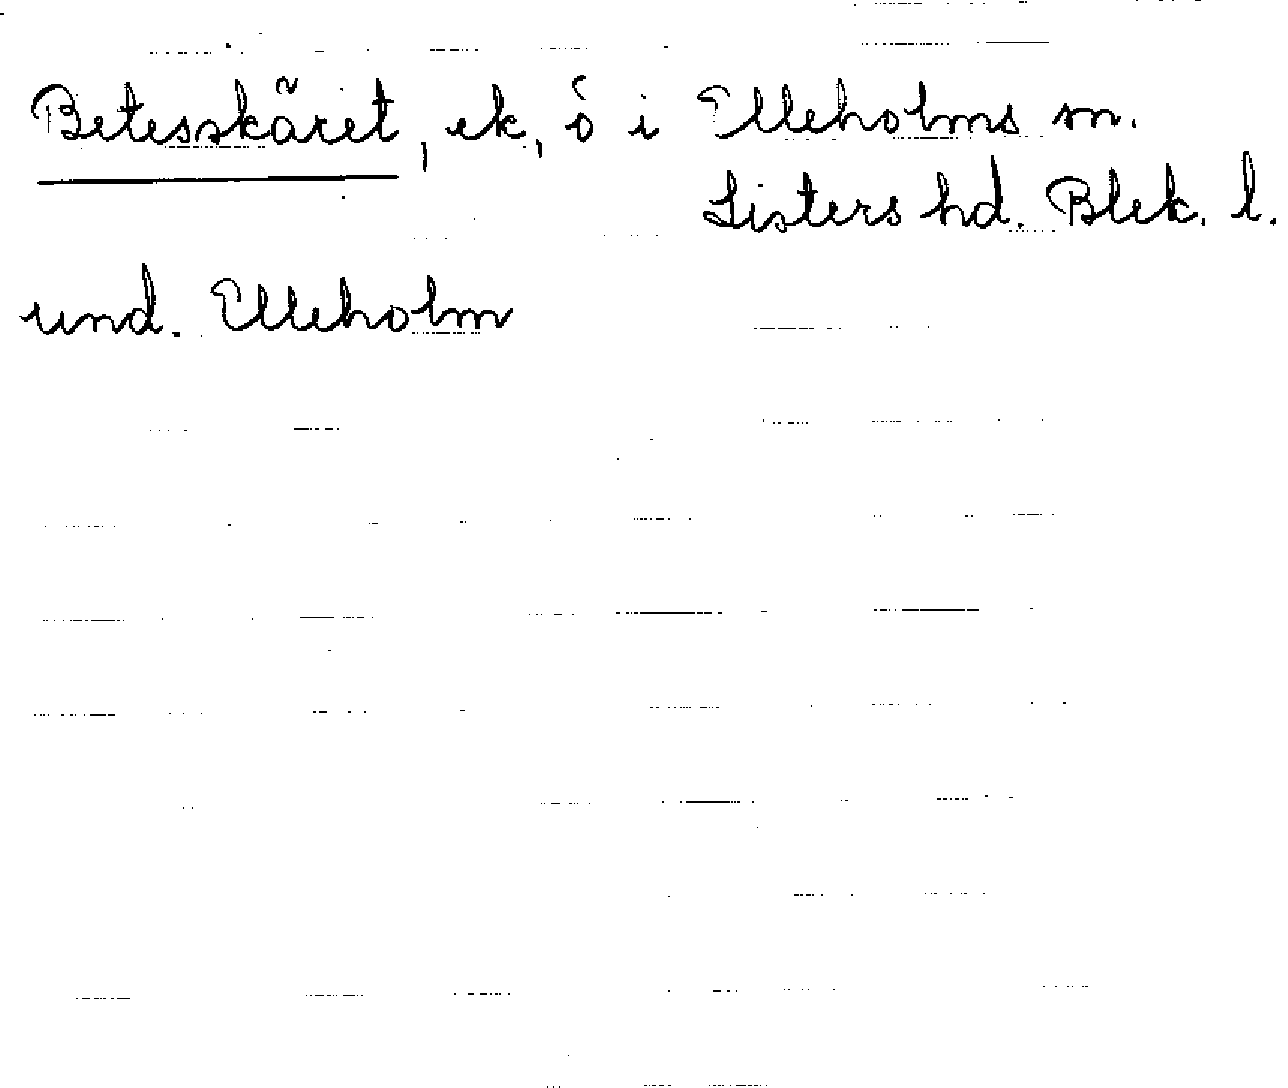 Betesskäret, ek, ö i Elleholms sn.
Listers hd. Blek. l.
und. Elleholm